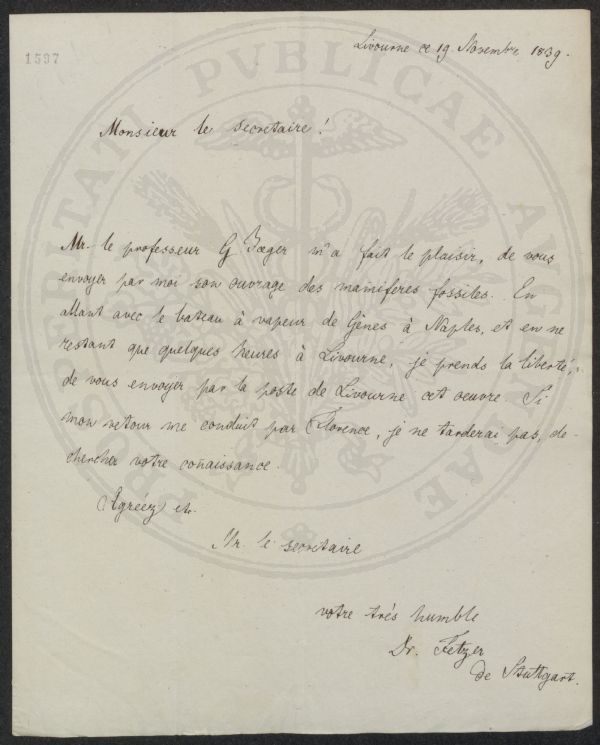 Livourne ce 19 Novembre 1839.
1597
PROSPERITATI PVBLICAE AVGENDAE
Monsieur le secretaire!
Mr. le professeur G Jæger m'a fait le plaisir, de vous
envoyer par moi son ouvrage des mamiferes fossiles. En
allant avec le bateau à vapeur de Gènes à Naples, et en ne
restant que quelques heures à Livourne, je prends la liberté,
de vous envoyer par la poste de Livourne cet oeuvre. Si
mon retour me conduit par Florence, je ne tarderai pas, de
chercher votre coñaissance.
Agréez etc.
Mr. le secretaire
votre trés humble
Dr. Fetzer
de Stuttgart.